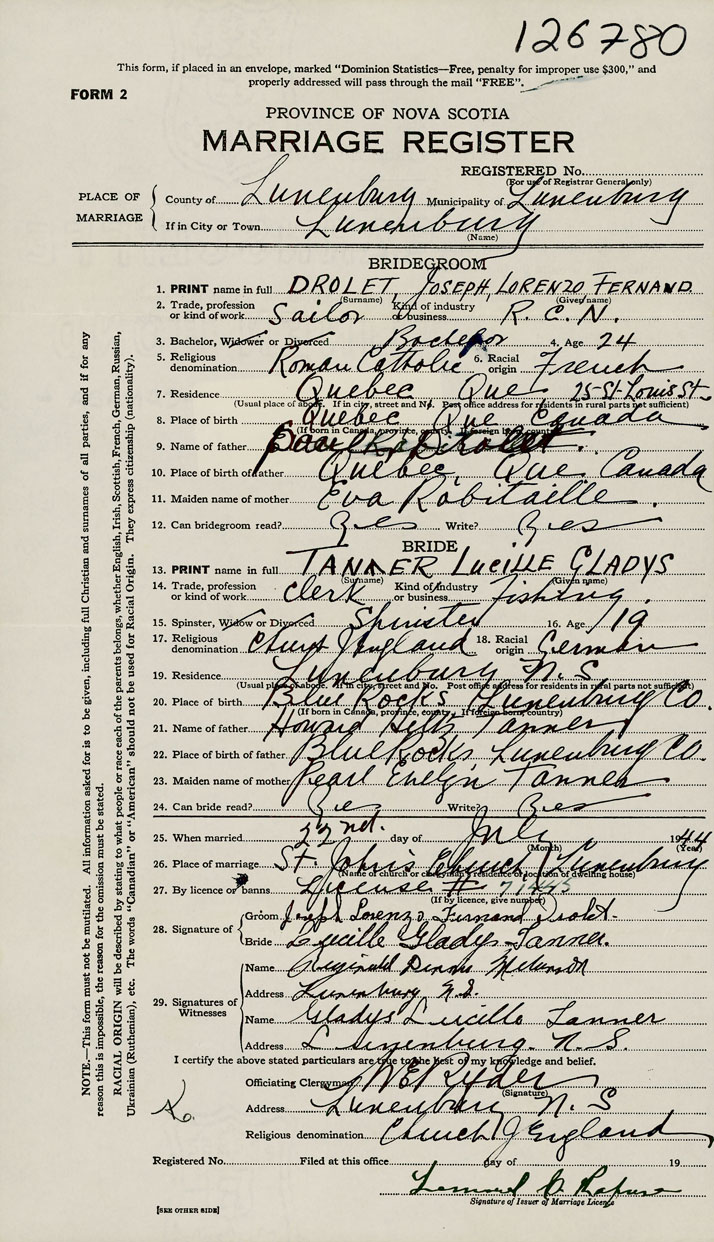 126780
This form, if placed in an envelope, marked "Dominion Statistics—Free, penalty for improper use $300," and
properly addressed will pass through the mail "FREE".
FORM 2
PROVINCE OF NOVA SCOTIA
MARRIAGE REGISTER
REGISTERED No.
(For use of Registrar General only)
PLACE OF MARRIAGE
County of Lunenburg Municipality of Lunenburg
If in City or Town Lunenburg
(Name)
BRIDEGROOM
1. PRINT name in full DROLET, JOSEPH, LORENZO FERNAND
(Surname) (Given name)
2. Trade, profession or kind of work Sailor Kind of industry or business R.C.N.
3. Bachelor, Widower or Divorced Bachelor 4. Age 24
5. Religious denomination Roman Catholic 6. Racial origin French
7. Residence Quebec Que 25-St-Louis St.
(Usual place of abode. If in city, street and No. Post office address for residents in rural parts not sufficient)
8. Place of birth Quebec Que Canada
(If born in Canada, province, county. If foreign born, country)
9. Name of father Drolet
10. Place of birth of father Quebec, Que Canada
11. Maiden name of mother Eva Robitaille
12. Can bridegroom read? Yes Write? Yes
BRIDE
13. PRINT name in full TANNER LUCILLE GLADYS
(Surname) (Given name)
14. Trade, profession or kind of work Clerk Kind of industry or business Fishing
15. Spinster, Widow or Divorced Spinster 16. Age 19
17. Religious denomination Church of England 18. Racial origin German
19. Residence Lunenburg N.S
(Usual place of abode. If in city, street and No. Post office address for residents in rural parts not sufficient)
20. Place of birth Blue Rocks, Lunenburg Co.
(If born in Canada, province, county. If foreign born, country)
21. Name of father Howard Tanner
22. Place of birth of father Blue Rocks, Lunenburg Co.
23. Maiden name of mother Pearl Evelyn Tanner
24. Can bride read? Yes Write? Yes
25. When married 22nd. day of July 1944
(Month) (Year)
26. Place of marriage St John's Church Lunenburg
(Name of church or clergyman's residence or location of dwelling house)
27. By licence or banns License # 71445
(If by licence, give number)
28. Signature of
Groom Joseph Lorenzo Fernand Drolet.
Bride Lucille Gladys Tanner.
29. Signatures of Witnesses
Name Reginald Dennis
Address Lunenburg N.S.
Name Gladys Lucille Tanner
Address Lunenburg. N.S.
I certify the above stated particulars are true to the best of my knowledge and belief.
Officiating Clergyman W E Ryder
(Signature)
Address Lunenburg N.S
Religious denomination Church of England
Registered No. Filed at this office day of 19
Signature of Issuer of Marriage Licence
[SEE OTHER SIDE]
NOTE.—This form must not be mutilated. All information asked for is to be given, including full Christian and surnames of all parties, and if for any
reason this is impossible, the reason for the omission must be stated.
RACIAL ORIGIN will be described by stating to what people or race each of the parents belongs, whether English, Irish, Scottish, French, German, Russian,
Ukrainian (Ruthenian), etc. The words "Canadian" or "American" should not be used for Racial Origin. They express citizenship (nationality).